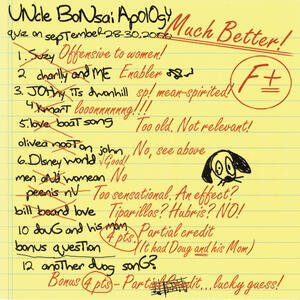 UNcle BoNsai ApolOgy
quiz on september 28-30, 2006
Much Better!
F±
1. Suzy Offensive to women!
2 charity and ME Enabler
3. JOhNy Its downhill sp! mean-spirited!
4 kmart looonnnnnng!!!
5. love boat song Too old. Not relevant!
olivea nooton john No, see above
6. Disney world √Good!
men and women No
peenis nV Too sensational. An effect?
bill board love Tiparillos? Hubris? NO!
10 douG and his mom 4 pts. Partial credit
bonus question (It had Doug and his Mom)
12 another dug sonG?
Bonus 4 pts - Partial Credit...lucky guess!